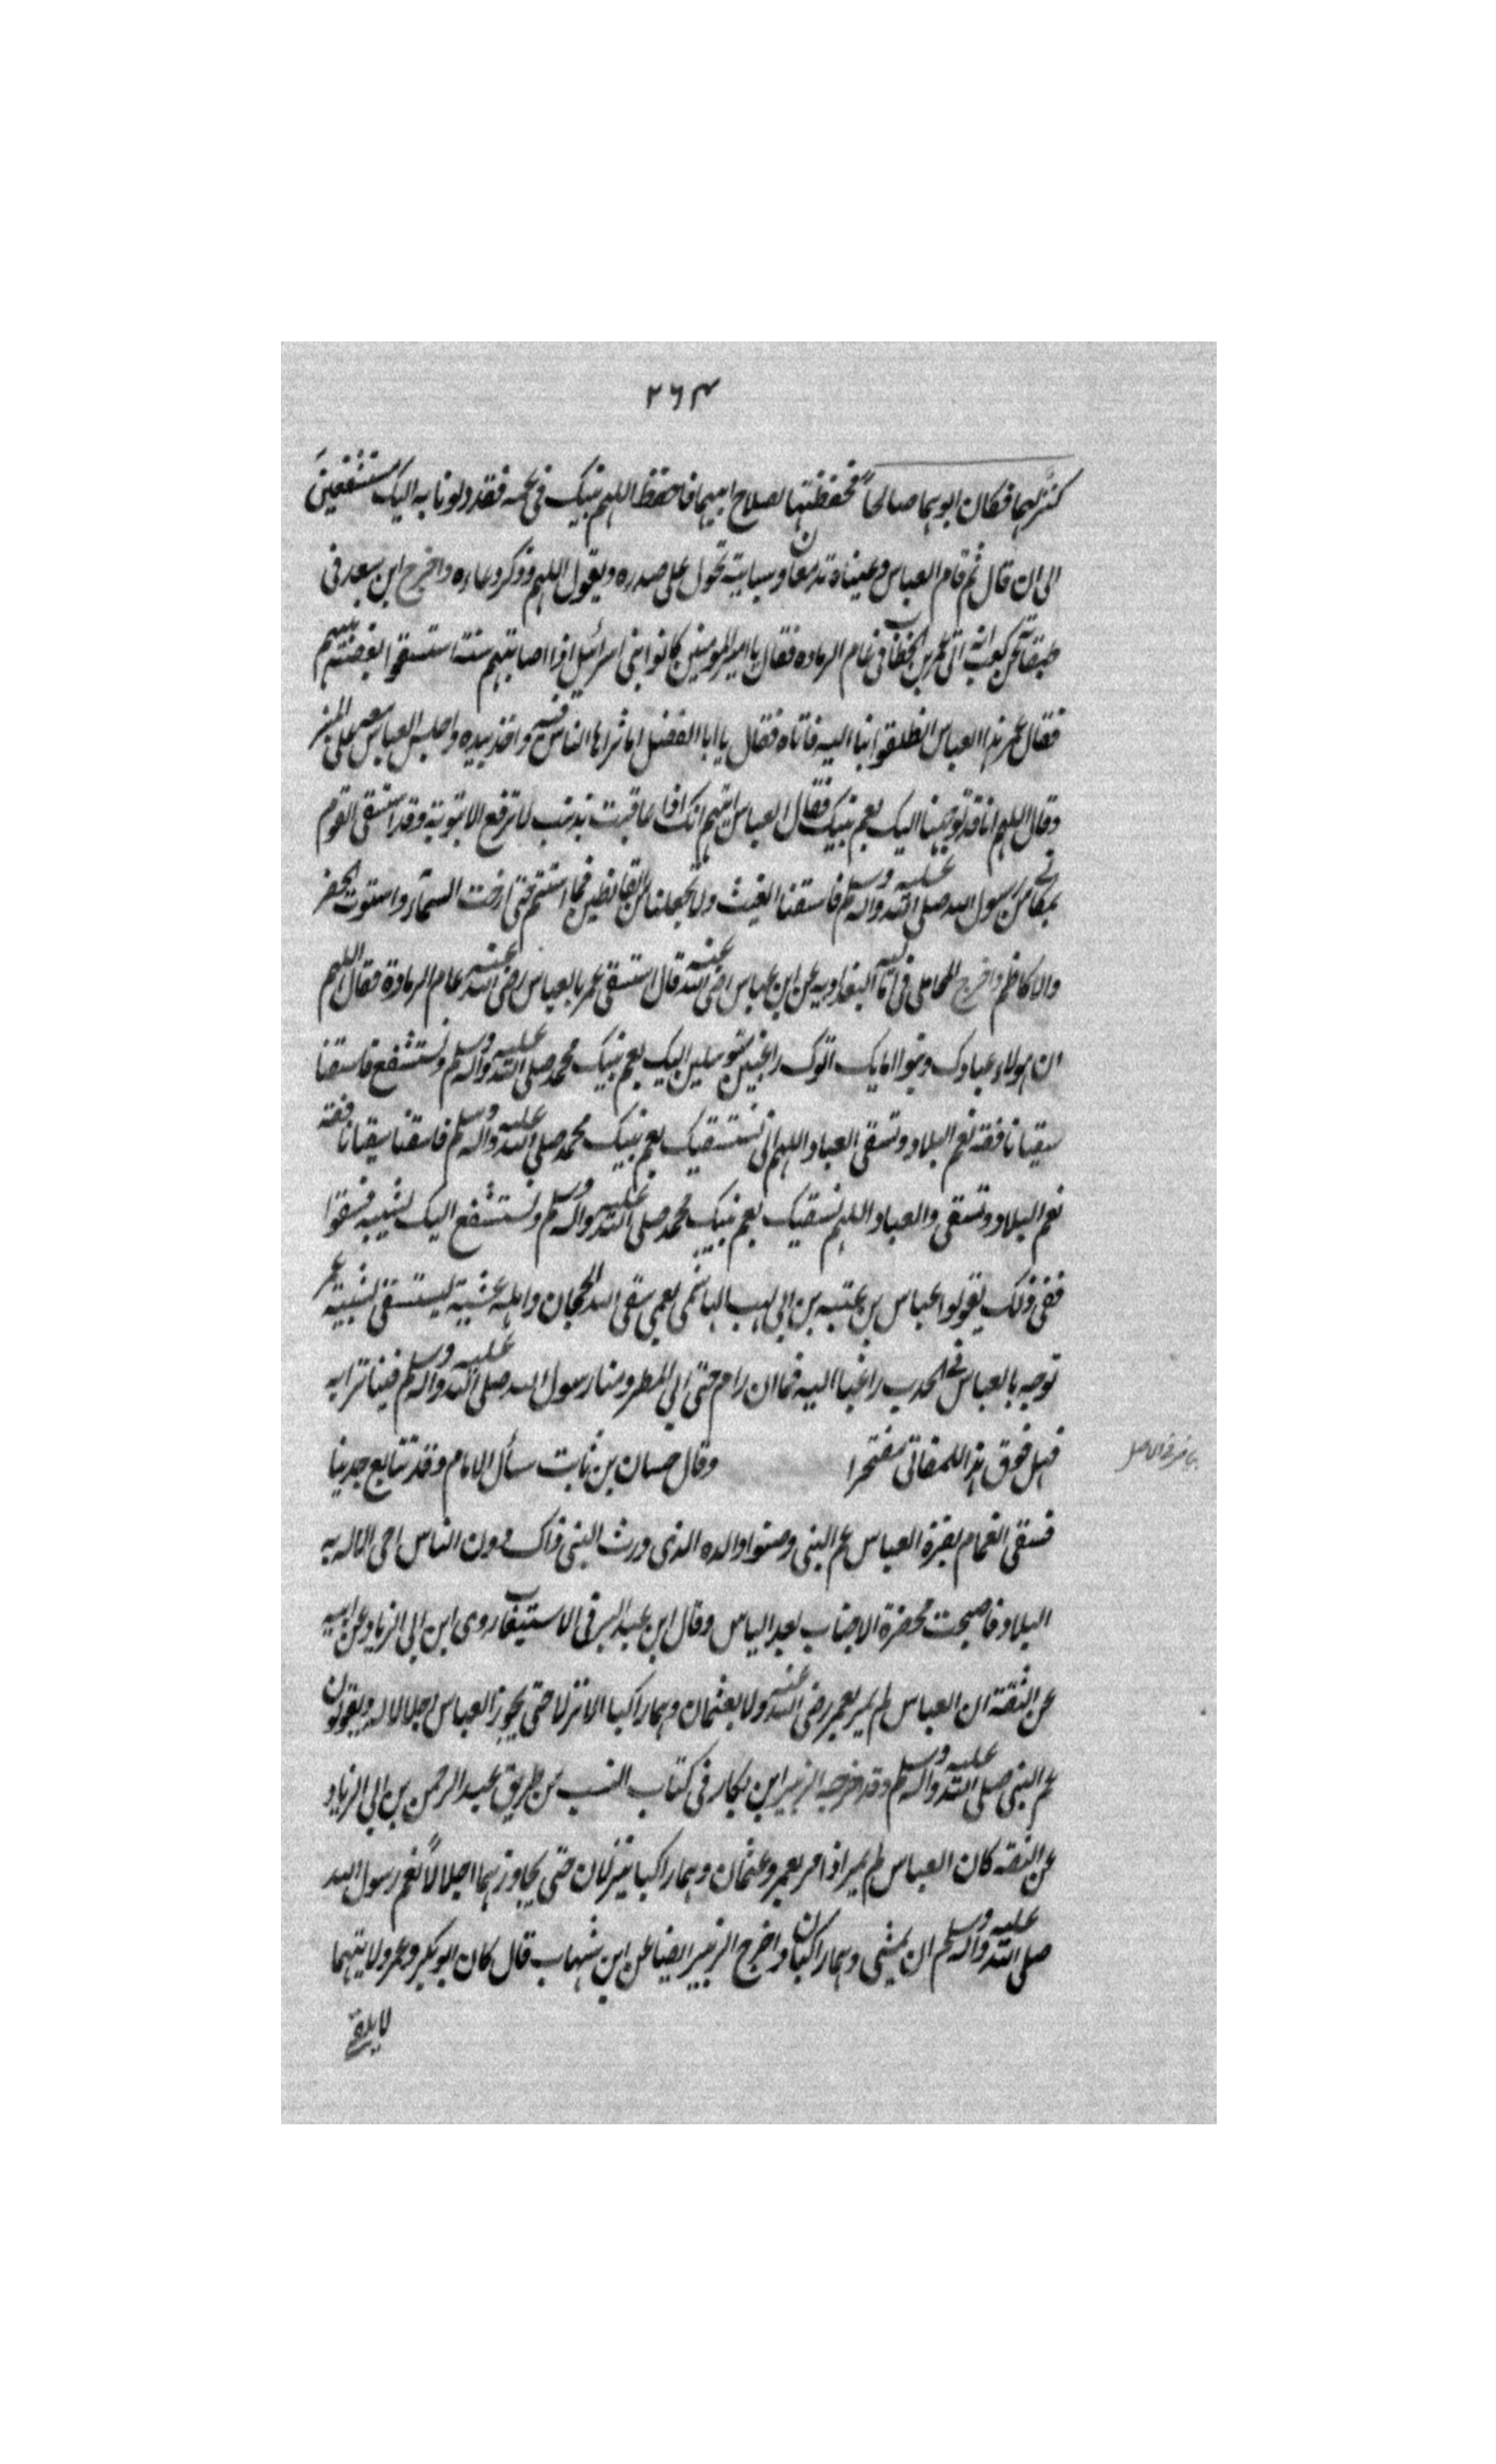 ٢٦٤
كنز لهما فكان ابوهما صالحاً فحفظتهما لصلاح ابيهما فاحفظ اللهم نبيك في عمه فقد دلونا به اليك مستشفعين
الى ان قال ثم قام العباس وعيناه تدمعان وسبابته تحول على صدره ويقول اللهم وذكر دعاءه واخرج ابن سعد في
طبقاته عن كعب انه اتى عمر بن الخطاب في عام الرمادة فقال يا امير المومنين كانوا بني اسرائيل اذا اصابتهم سنة استسقوا بعصبة نبيهم
فقال عمر هذا العباس انطلقوا بنا اليه فاتاه فقال يا ابا الفضل اما ترا ما الناس فيه واخذ بيده واجلس العباس معه على المنبر
وقال اللهم انا قد توجهنا اليك بعم نبيك فقال العباس اللهم انك اذا عاقبت بذنب لا ترفع الا بتوبة وقد استسقى القوم
بمكاني من رسول الله صلى الله عليه واله وسلم فاسقنا الغيث ولا تجعلنا من القانطين فما استتم حتى ارخت السماء واستوت الحفر
والاكام واخرج المحاملي في البغدادية عن ابن عباس رضي الله عنه قال استسقى عمر بالعباس رضي الله عنه عام الرمادة فقال اللهم
ان هولاء عبادك وبنوا امايك اتوك راغبين متوسلين اليك بعم نبيك محمد صلى الله عليه واله وسلم ونستشفع فاسقنا
سقيا نافعة تعم البلاد وتسقي العباد اللهم اني نستسقيك بعم نبيك محمد صلى الله عليه واله وسلم فاسقنا سقيا نافعة
تعم البلاد وتسقي والعباد اللهم نسقيك بعم نبيك محمد صلى الله عليه واله وسلم ونستشفع اليك بشيبه فسقوا
ففي ذلك يقولوا عباس بن عتبه بن ابي لهب الهاشمي بعمي سقى الله الحجاز واهله عشية يستسقي بشيبته عمر
توجه بالعباس في الجدب راغبا اليه فما ان رام حتى اتى المطر ومنا رسول الله صلى الله عليه واله وسلم فينا تراثه
فهل فوق هذا للمفاتي مفتخرا وقال حسان بن ثابت سأل الامام وقد تتابع جدبنا
فسقى الغمام بغرة العباس عم النبي وصنوا والده الذي ورث النبي ذاك دون الناس احى الاله به
البلاد فاصبحت مخضرة الاجناب بعد الياس وقال ابن عبد البر في الاستيعاب روى ابن ابي الزناد عن ابيه
عن الثقة ان العباس لم يمر بعمر رضي الله عنه ولا بعثمان وهما راكبا الا نزلا حتى يجوز العباس اجلالا له ويقولون
عم النبي صلى الله عليه واله وسلم وقد خرجه الزبير ابن بكار في كتاب النسب من طريق عبد الرحمن بن ابي الزناد
عن الثقة كان العباس لم يمر اذا مر بعمر وعثمان وهما راكبا ينزلان حتى يجاوزهما اجلالاً لعم رسول الله
صلى الله عليه واله وسلم ان يمشي وهما راكبان واخرج الزبير ايضا عن ابن شهاب قال كان ابو بكر وعمر ولايتهما
لا يلقى